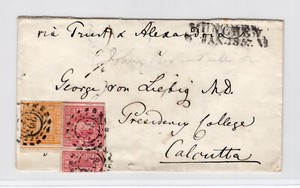 via Triest & Alexandria
MÜNCHEN
JAN. 185
George von Liebig M.D.
Presidency College
Calcutta